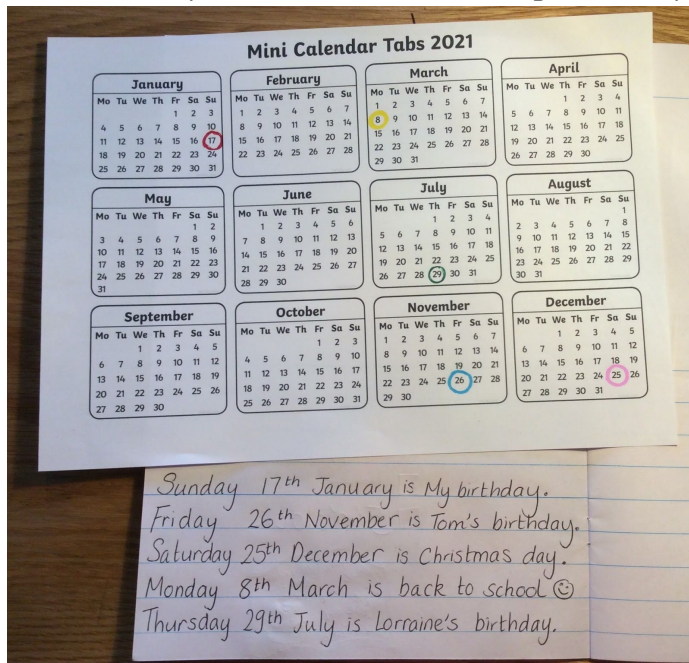 Mini Calendar Tabs 2021
January
Mo Tu We Th Fr Sa Su
1 2 3
4 5 6 7 8 9 10
11 12 13 14 15 16 17
18 19 20 21 22 23 24
25 26 27 28 29 30 31
February
Mo Tu We Th Fr Sa Su
1 2 3 4 5 6 7
8 9 10 11 12 13 14
15 16 17 18 19 20 21
22 23 24 25 26 27 28
March
Mo Tu We Th Fr Sa Su
1 2 3 4 5 6 7
8 9 10 11 12 13 14
15 16 17 18 19 20 21
22 23 24 25 26 27 28
29 30 31
April
Mo Tu We Th Fr Sa Su
1 2 3 4
5 6 7 8 9 10 11
12 13 14 15 16 17 18
19 20 21 22 23 24 25
26 27 28 29 30
May
Mo Tu We Th Fr Sa Su
1 2
3 4 5 6 7 8 9
10 11 12 13 14 15 16
17 18 19 20 21 22 23
24 25 26 27 28 29 30
31
June
Mo Tu We Th Fr Sa Su
1 2 3 4 5 6
7 8 9 10 11 12 13
14 15 16 17 18 19 20
21 22 23 24 25 26 27
28 29 30
July
Mo Tu We Th Fr Sa Su
1 2 3 4
5 6 7 8 9 10 11
12 13 14 15 16 17 18
19 20 21 22 23 24 25
26 27 28 29 30 31
August
Mo Tu We Th Fr Sa Su
1
2 3 4 5 6 7 8
9 10 11 12 13 14 15
16 17 18 19 20 21 22
23 24 25 26 27 28 29
30 31
September
Mo Tu We Th Fr Sa Su
1 2 3 4 5
6 7 8 9 10 11 12
13 14 15 16 17 18 19
20 21 22 23 24 25 26
27 28 29 30
October
Mo Tu We Th Fr Sa Su
1 2 3
4 5 6 7 8 9 10
11 12 13 14 15 16 17
18 19 20 21 22 23 24
25 26 27 28 29 30 31
November
Mo Tu We Th Fr Sa Su
1 2 3 4 5 6 7
8 9 10 11 12 13 14
15 16 17 18 19 20 21
22 23 24 25 26 27 28
29 30
December
Mo Tu We Th Fr Sa Su
1 2 3 4 5
6 7 8 9 10 11 12
13 14 15 16 17 18 19
20 21 22 23 24 25 26
27 28 29 30 31
Sunday 17th January is My birthday.
Friday 26th November is Tom's birthday.
Saturday 25th December is Christmas day.
Monday 8th March is back to school ☺
Thursday 29th July is Lorraine's birthday.